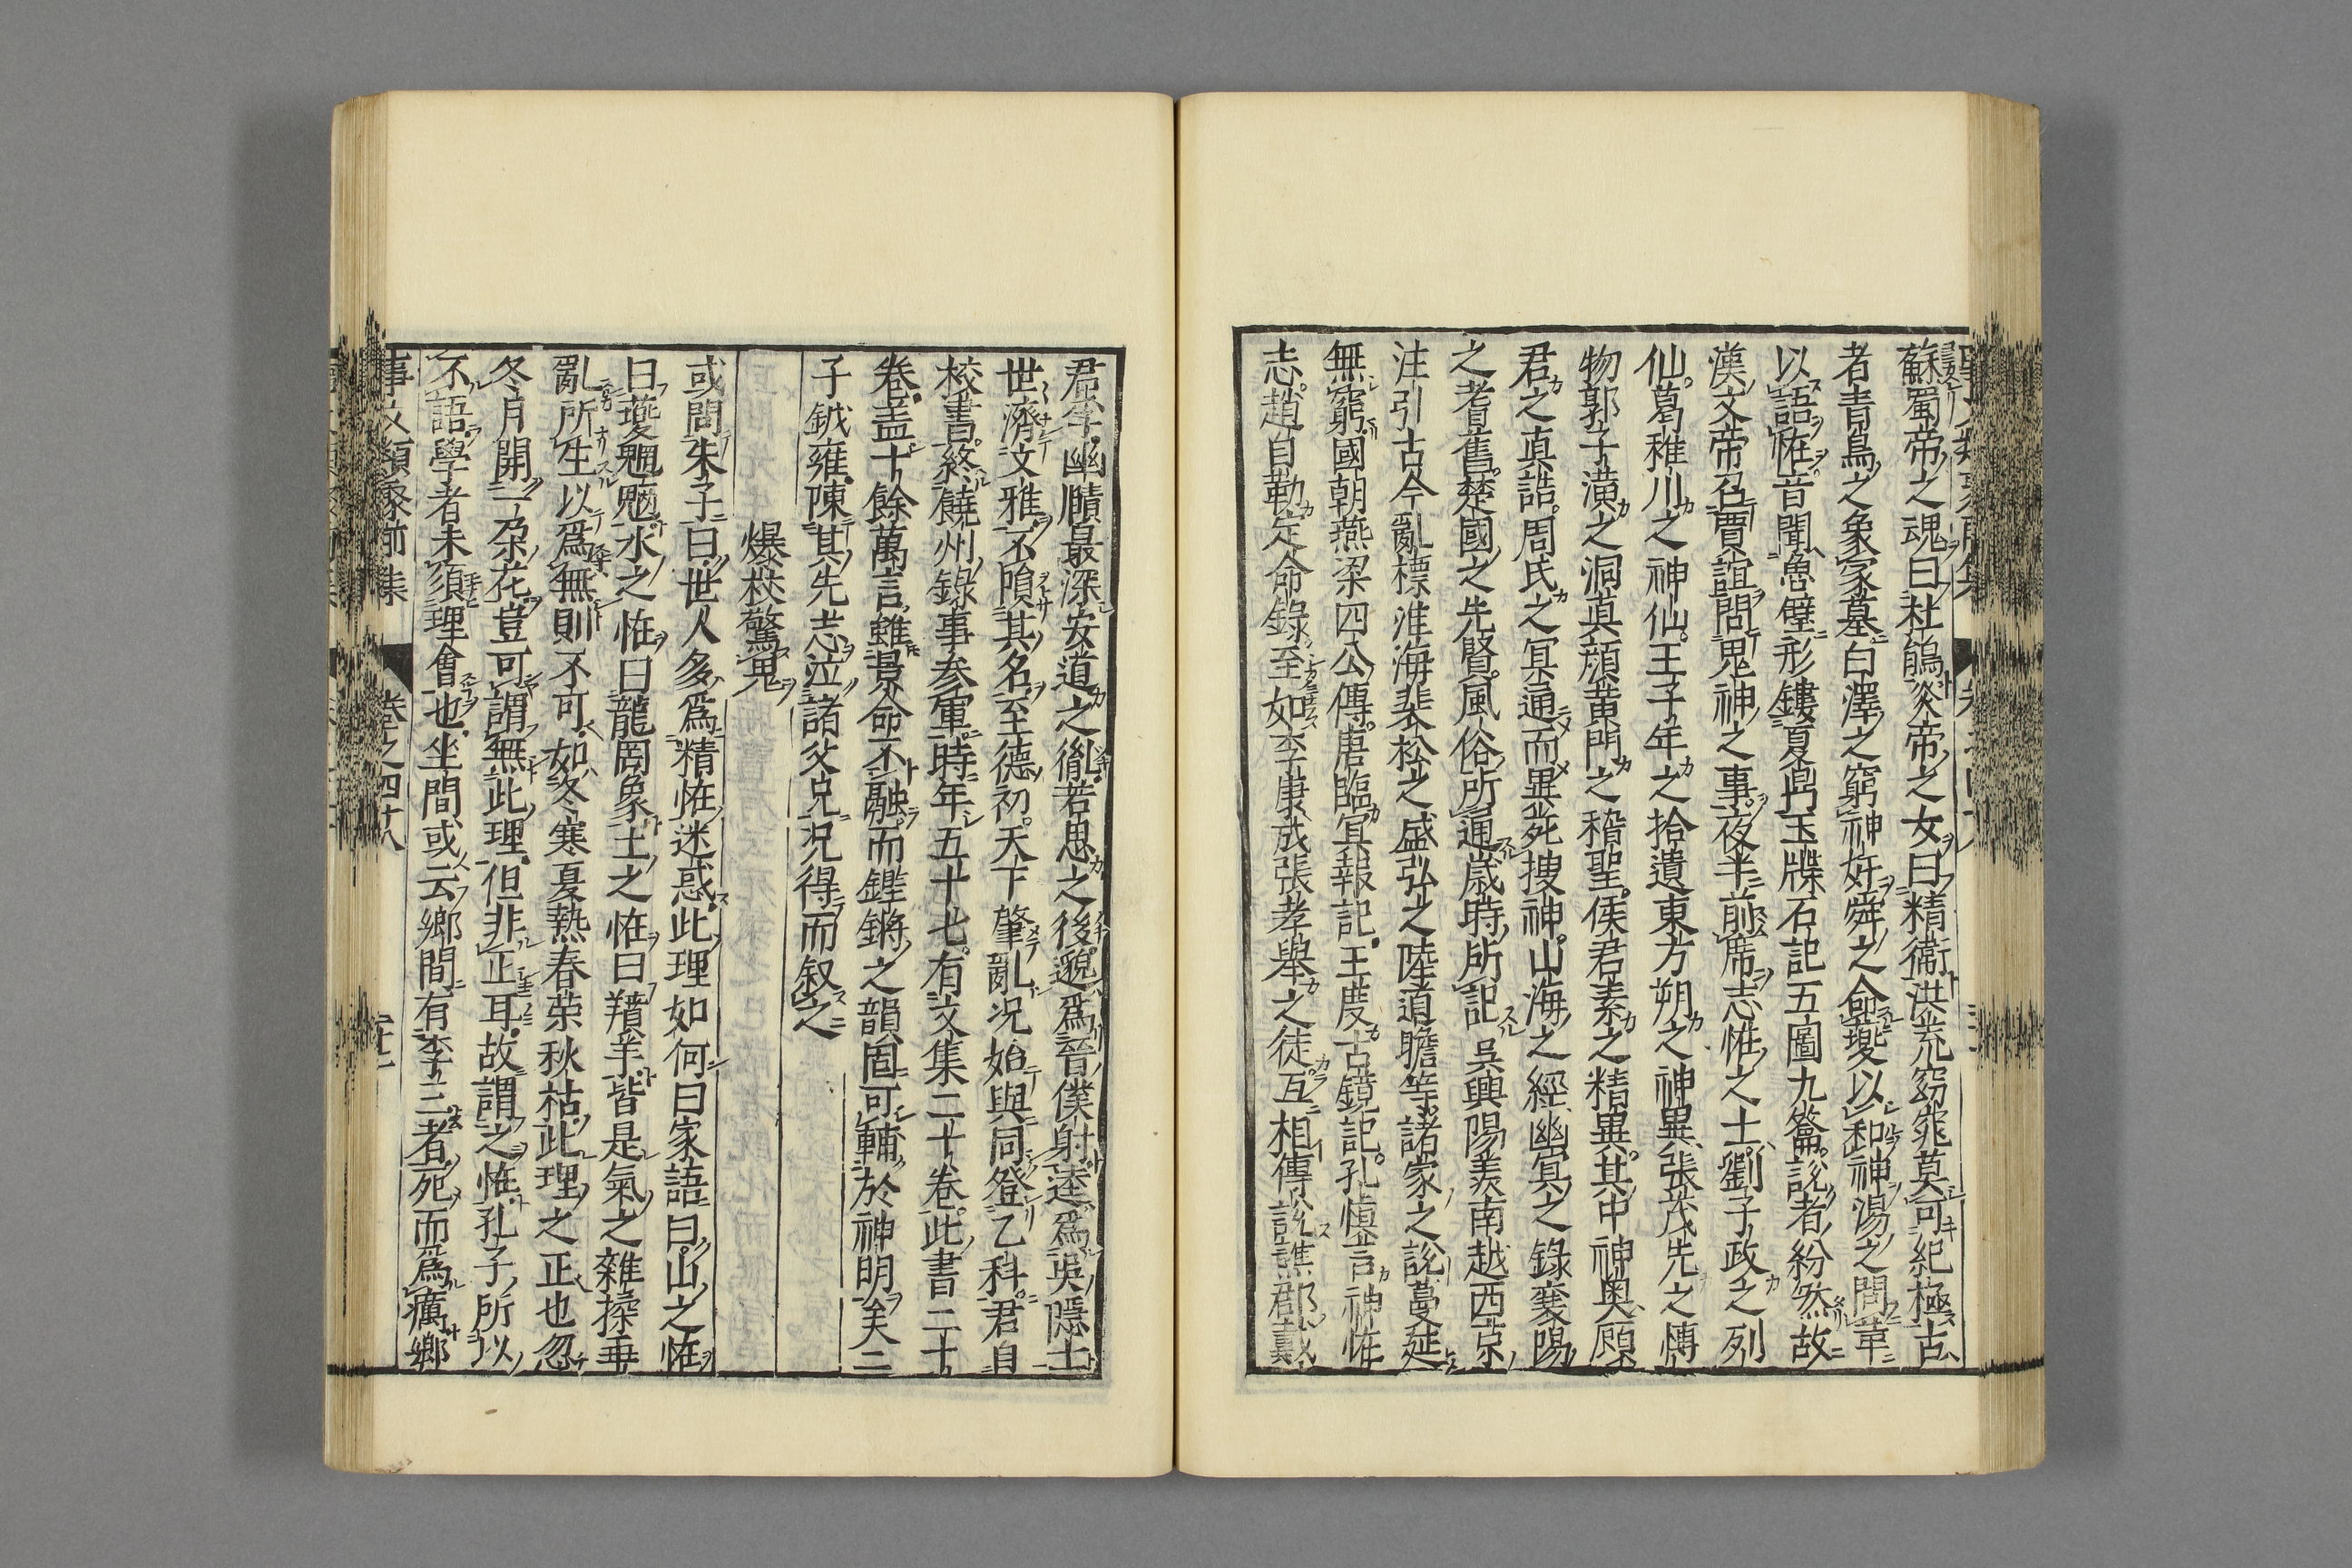 蘇蜀帝之魂曰杜鵑炎帝之女曰精衞洪荒窈窕莫可紀極古
者青烏之象冢墓白澤之窮神奸舜之命夔以和神湯之問革
以語恠音聞魯壁形鏤夏鼎玉牒石記五圖九籥説者紛然故
漢文帝召賈誼問鬼神之事夜半前席志恠之士劉子政之列
仙葛稚川之神仙王子年之拾遺東方朔之神異張茂先之愽
物郭子潢之洞真顔黄門之稽聖侯君素之精異其中神奥顧
君之真誥周氏之冥通而異苑捜神山海之經幽冥之錄襄陽
之耆舊楚國之先賢風俗所通歳時所記吳興陽羨南越西京
注引古今亂標淮海裴松之盛弘之陸道瞻等諸家之說蔓延
無窮國朝燕梁四公傳唐臨冥報記王度古鏡記孔愼言神恠
志趙自勤定命錄至如李康成張孝舉之徒互相傳説譙郡戴
君孚幽賾最深安道之後胤若思之後邈爲晉僕射逵爲吳隱士
世濟文雅不隕其名至德初天下肇亂况始與同登乙科君自
校書終饒州錄事参軍時年五十七有文集二十卷此書二十
卷盖十餘萬言雖景命不融而鏗鏘之韻固可輔於神明矣二
子鉞雍陳其先志泣諸父兄况得而叙之
爆杖驚鬼
或問朱子曰世人多爲精恠迷惑此理如何曰家語曰山之恠
曰夔魍魎水之恠曰龍罔象土之恠曰羵羊皆是氣之雜揉乖
亂所生以爲無則不可如冬寒夏熱春荣秋枯此理之正也忽
冬月開一朵花豈可謂無此理但非正耳故謂之恠孔子所以
不語學者未須理會也坐間或云鄉間有李三者死而爲癘鄉
事文類聚前集 卷之四十八